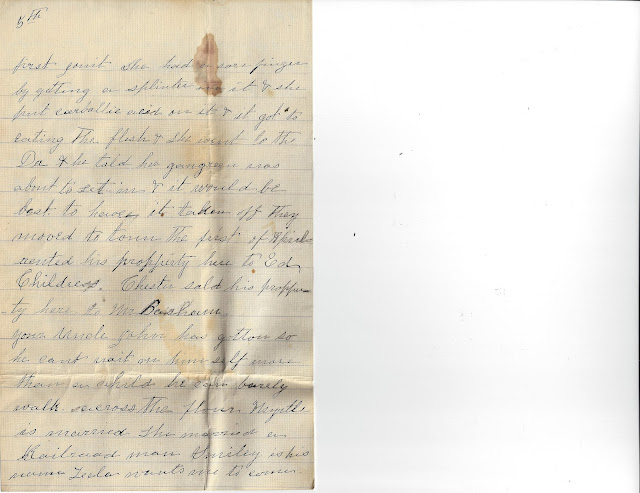 5th
first joint she had a sore finger
by getting a splinter in it & she
put carbollic acid on it & it got to
eating the flesh & she went to the
Dr & he told her gangreen was
about to set in & it would be
best to have it taken off they
moved to town the first of April
rented his propperty here to Ed
Childress. Chester sold his propper-
ty here to Mr Basham
your Uncle John has gotton so
he cant wait on him self more
than a child he can barely
walk across the flour Myrtle
is marered she married a
Railroad man Smiley is his
name Leela wants me to come